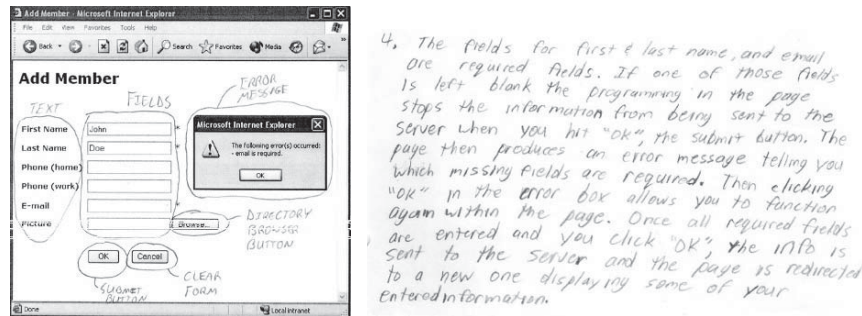 Add Member - Microsoft Internet Explorer
File Edit View Favorites Tools Help
Back Search Favorites Media
Add Member
ERROR
MESSAGE
TEXT
FIELDS
First Name John *
Last Name Doe *
Phone (home)
Phone (work)
E-mail *
Picture Browse...
Microsoft Internet Explorer
The following error(s) occurred:
- email is required.
OK
DIRECTORY
BROWSER
BUTTON
OK Cancel
SUBMIT
BUTTON
CLEAR
FORM
Done Local intranet
4. The fields for first & last name, and email
are required fields. If one of those fields
is left blank the programming in the page
stops the information from being sent to the
server when you hit "OK", the submit button. The
page then produces an error message telling you
which missing fields are required. Then clicking
"OK" in the error box allows you to function
again within the page. Once all required fields
are entered and you click "OK", the info is
sent to the server and the page is redirected
to a new one displaying some of your
entered information.